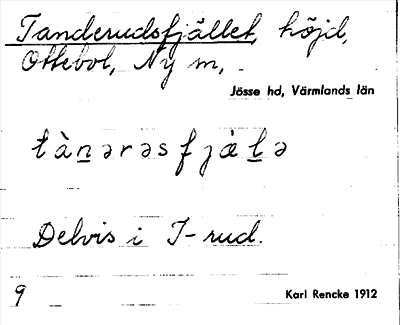 Tanderudsfjället, höjd,
Ottebol, Ny sn,
Jösse hd, Värmlands län
tànərəsfjæ̀lə
Delvis i T-rud.
9
Karl Rencke 1912